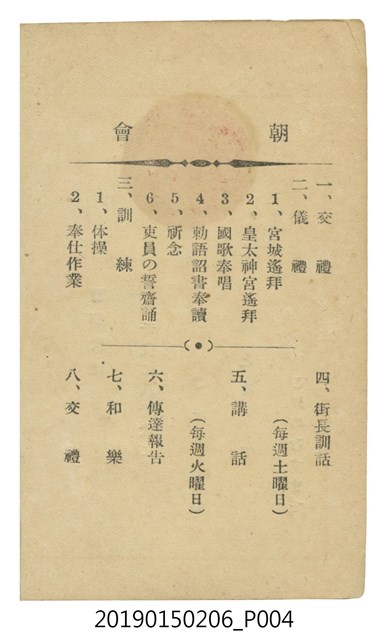 朝會
一、交禮
二、儀禮
1、宮城遙拜
2、皇太神宮遙拜
3、國歌奉唱
4、勅語詔書奉讀
5、祈念
6、吏員の誓齋誦
三、訓練
1、体操
2、奉仕作業
四、街長訓話
(每週土曜日)
五、講話
(每週火曜日)
六、傳達報告
七、和樂
八、交禮
20190150206_P004